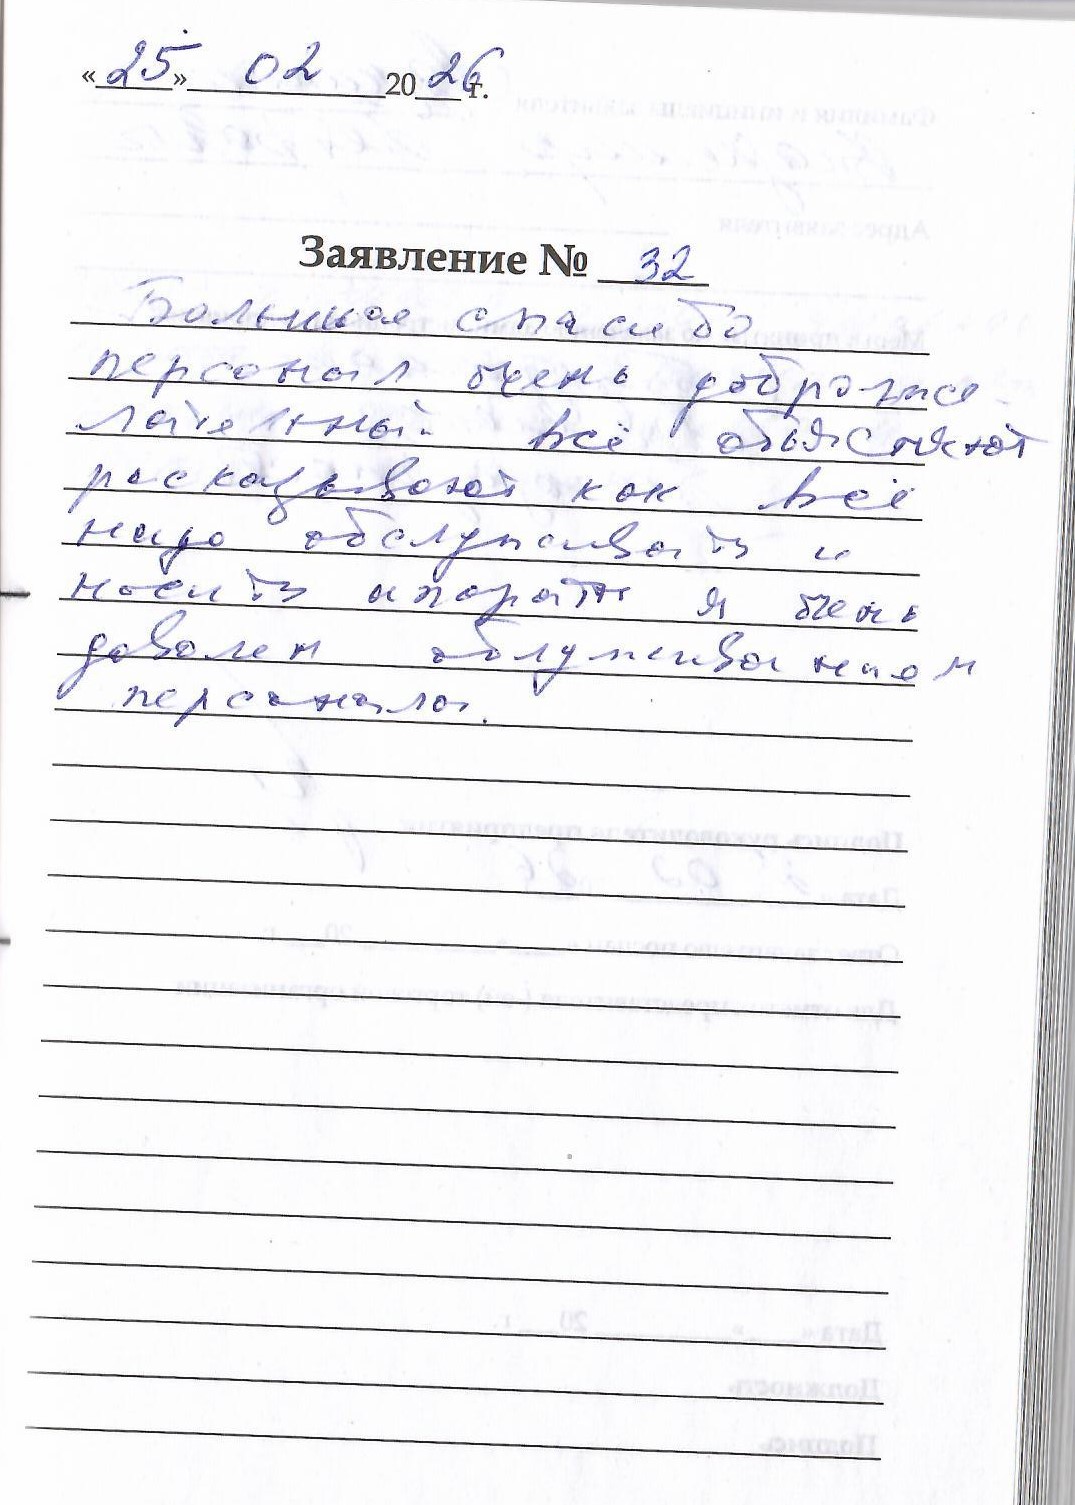 «25» 02 2026 г.
Заявление № 32
Большое спасибо
персонал очень доброже
лательный. всё объясняют
расказывают как всё
надо обслуживать и
носить апараты я очень
доволен облуживанием
персонала.